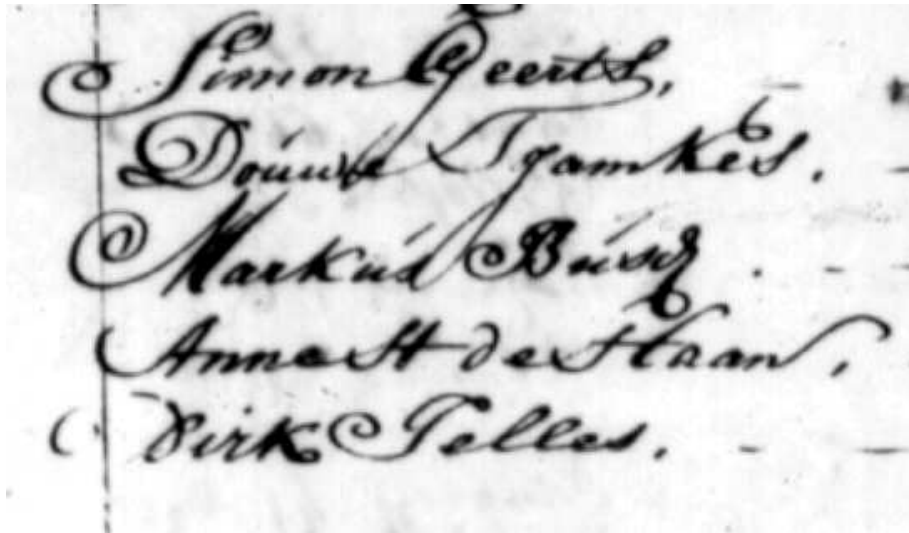 Simon Geerts.
Douwe Tjamkes.
Markus Busch
Anne H de Haan.
Dirk Jelles.